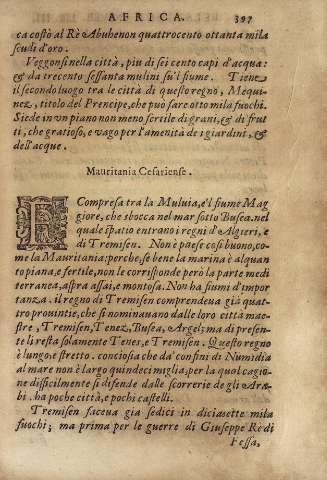 AFRICA. 397
ca costò al Rè Abuhenon quattrocento ottanta mila
scudi d'oro.
Veggonsi nella città, piu di sei cento capi d'acqua:
& da trecento sessanta mulini su'l fiume. Tiene
il secondo luogo tra le città di questo regno, Mequi
nez, titolo del Prencipe, che può fare otto mila fuochi.
Siede in vn piano non meno fertile di grani, & di frut
ti, che gratioso, e vago per l'amenità de i giardini, &
dell'acque.
Mauritania Cesariense.
RE Compresa tra la Muluia, e'l fiume Mag
giore, che sbocca nel mar sotto Busea. nel
quale spatio entrano i regni d'Algieri, e
di Tremisen. Non è paese cosi buono, co
me la Mauritania: perche, se bene la marina è alquan
to piana, e fertile, non le corrisponde però la parte medi
terranea, aspra assai, e montosa. Non ha fiumi d'impor
tanza. il regno di Tremisen comprendeua già quat
tro prouintie, che si nominauano dalle loro città mae-
stre, Tremisen, Tenez, Busea, Argel; ma di presen-
te li resta solamente Tenes, e Tremisen. Questo regno
è lungo, e stretto. conciosia che da' confini di Numidia
al mare non è largo quindeci miglia, per la qual cagio
ne difficilmente si difende dalle scorrerie de gli Ara-
bi. ha poche città, e pochi castelli.
Tremisen faceua già sedici in diciasette mila
fuochi; ma prima per le guerre di Giuseppe Rè di
Fessa,